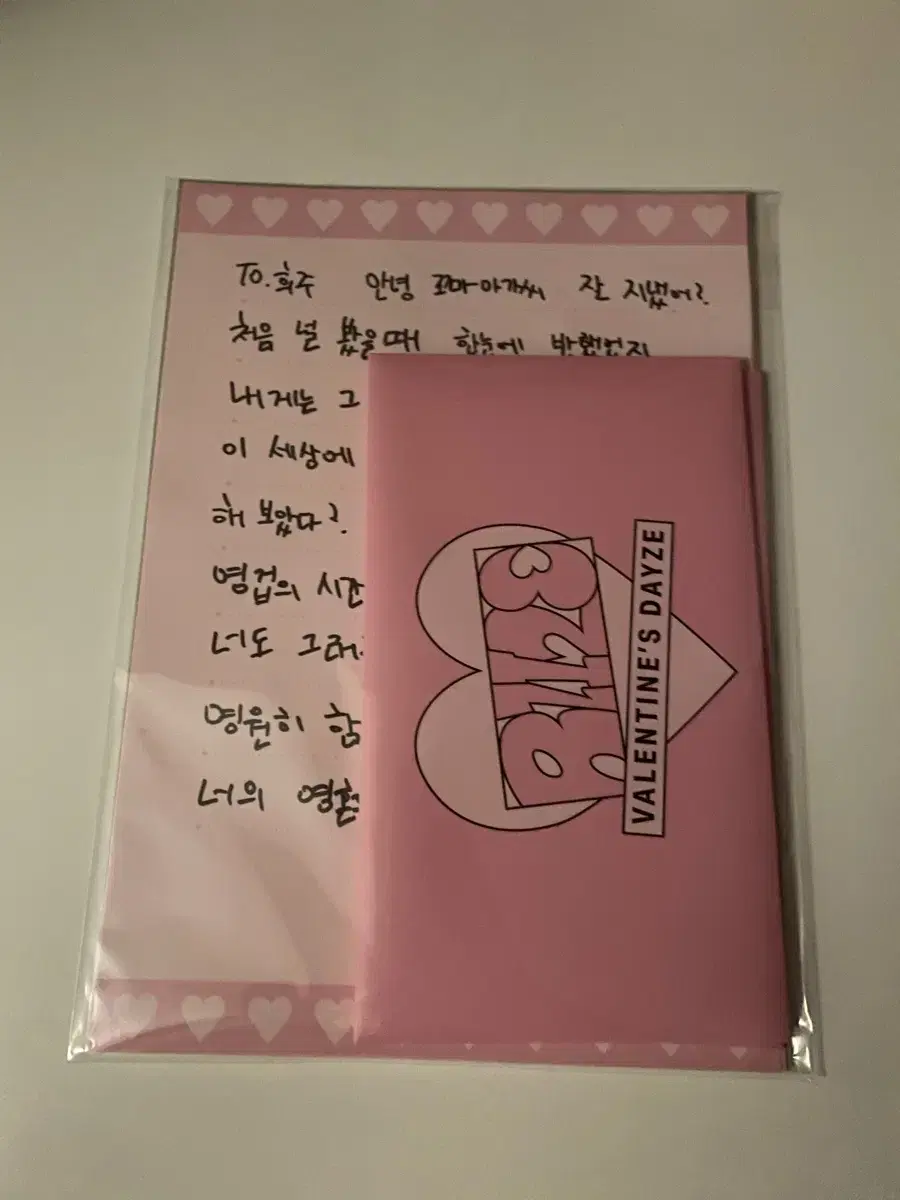 To.희주 안녕 꼬마아가씨 잘 지냈어?
처음 널 봤을때 한눈에 반했던지
내게는 그
이 세상에
해 보았다?
영겁의 시간
너도 그래
영원히 함
너의 영혼
VALENTINE'S DAYZE